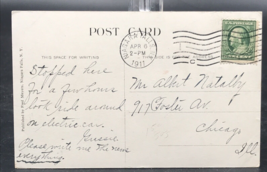 POST CARD
THIS SPACE FOR WRITING
NIAGARA FALLS
APR 8
2-PM
1911
Stopped here
for a few hours
took ride around
on electric car.
Please write me the news
everything.
Mr. Albert Natalby
917 Foster Av.
Chicago
Ill.